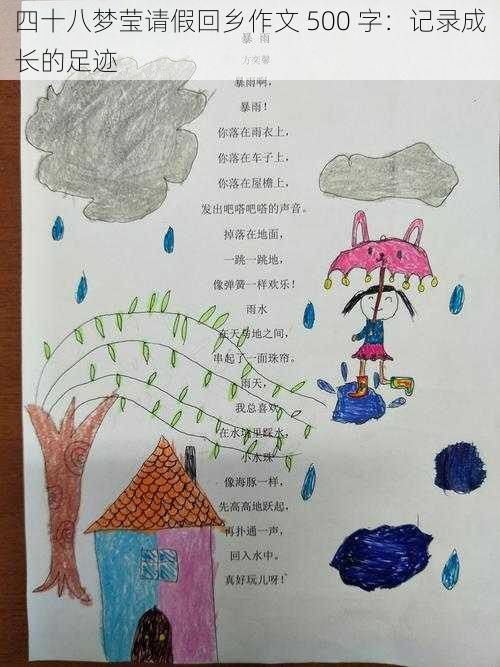 四十八梦莹请假回乡作文 500 字：记录成
长的足迹
暴 雨
方奕馨
暴雨啊，
暴雨！
你落在雨衣上，
你落在车子上，
你落在屋檐上，
发出吧嗒吧嗒的声音。
掉落在地面，
一跳一跳地，
像弹簧一样欢乐！
雨水
在天与地之间，
串起了一面珠帘。
雨天，
我总喜欢
在水坑里踩水，
小水珠
像海豚一样，
先高高地跃起，
再扑通一声，
回入水中。
真好玩儿呀！